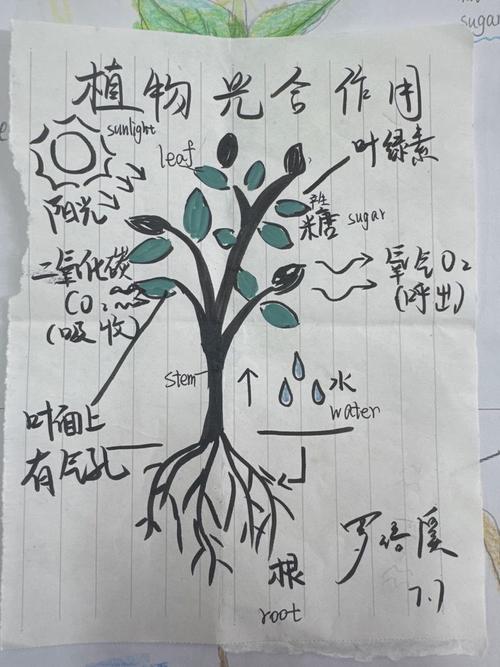 植物光合作用
sunlight
阳光
leaf
叶绿素
产生
糖 sugar
二氧化碳
CO₂
(吸收)
氧气O₂
(呼出)
stem
水
water
叶面上
有气孔
根
root
7.7
sugar